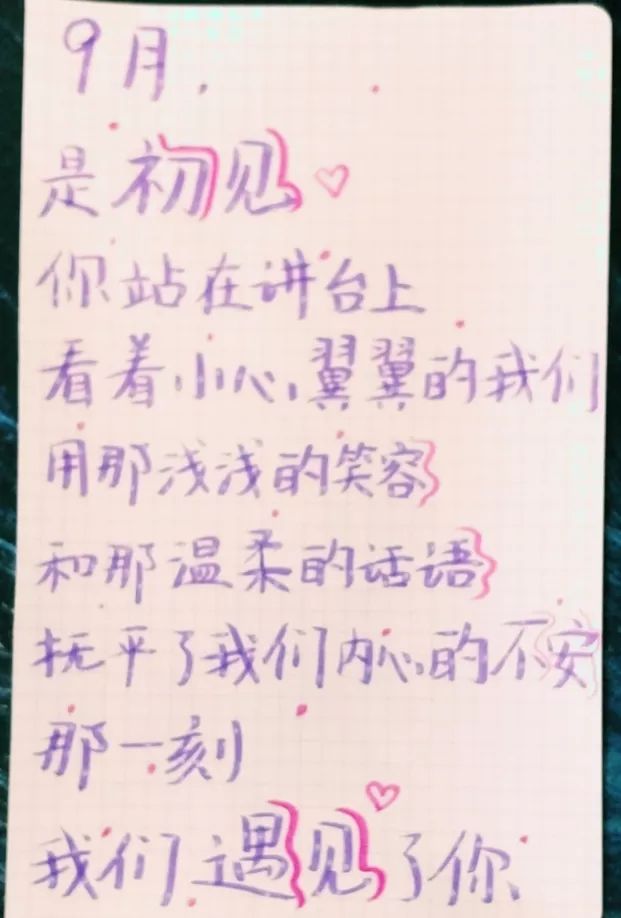 9月,
是初见♡
你站在讲台上
看着小心翼翼的我们
用那浅浅的笑容
和那温柔的话语
抚平了我们内心的不安
那一刻
我们遇见了你